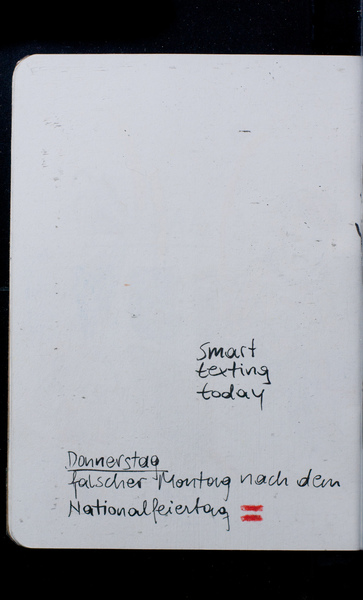 smart
texting
today
Donnerstag
falscher Montag nach dem
Nationalfeiertag